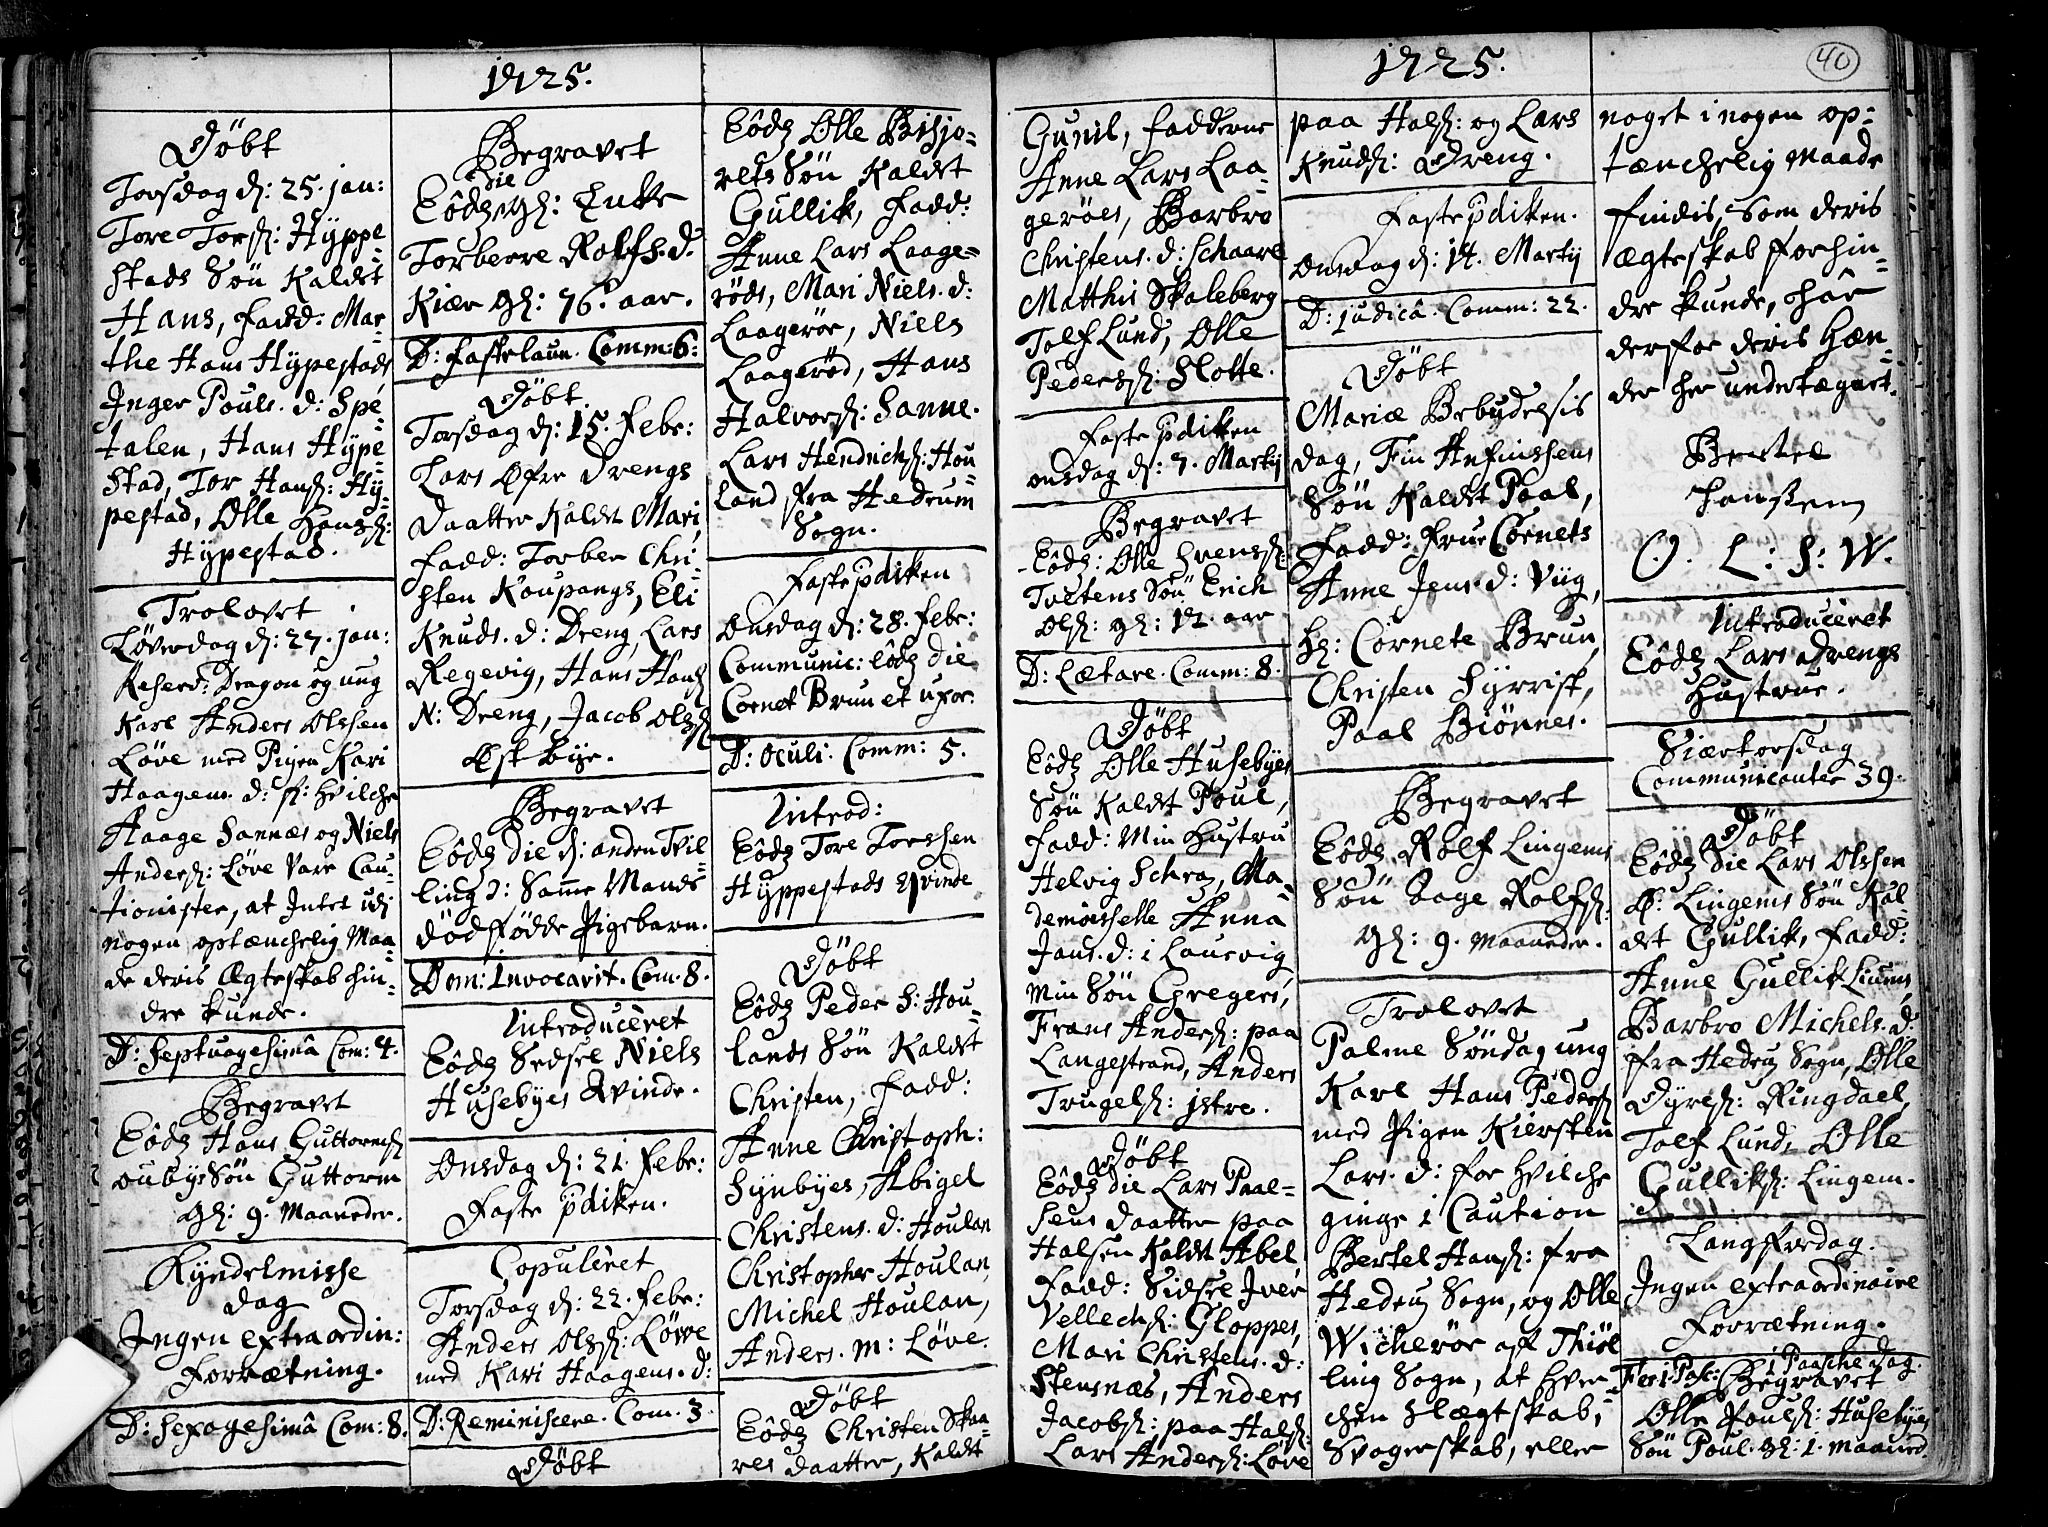 1725.
Døbt
Torsdag d: 25. jan:
Tore Tors: Hyppe-
stads Søn kaldet
Hans, Fadd: Mar-
the Hans Hypestads
Inger Pouls. d: Spe-
talen, Hans Hype-
stad, Tor Hans: Hy-
pestad, Olle Hans:
Hypestad.
Trolovet
Løverdag d: 27. jan:
Reserv: Dragon og ung
Karl Anders Olssen
Løve med Pigen Kari
Haagens. d: f: hvilche
Haage Sannæs og Niels
Anders: Løve vare Cau-
tionister, at Intet udi
nogen optænchelig Maa
de deris Ægteskab hin-
dre kunde.
D: Septuagesimâ Com: 4.
Begravet
Eôdz Hans Guttorms
oubys Søn Guttorm
gl: 9. Maaneder.
Kyndelmisse
dag
Ingen extraordin:
Forrætning.
D: Sexagesimâ Com: 8.
Begravet
die
Eôdz gl: Enke
Torberre Rolfs. d.
Kiær gl: 76. aar.
D: Fastelaun. Comm: 6:
Døbt
Torsdag d: 15. Febr:
Lars Øfre Drengs
Daatter kaldet Mari,
Fadd: Torber Chri-
sten Koupangs, Eli
Knuds. d: Dreng, Lars
Regevig, Hans Hans
N: Dreng, Jacob Ols
Østbye.
Begravet
Eôdz die d: anden Tvil-
ling ɔ: Samme Mands
dødfødde Pigebarn.
Dom: Invocavit. Com. 8.
Introducêret
Eôdz Sedsel Niels
Husebyes Qvinde.
Onsdag d: 21. Febr:
Faste pdiken.
Copulêret
Torsdag d: 22. Febr:
Anders Ols: Løve
med Kari Haagens. d:
D: Reminiscere. Com. 3.
Døbt
Eôdz Olle Bisjo-
rets Søn kaldet
Gullik, Fadd:
Anne Lars Laage-
røds, Mari Niels. d:
Laagerøe, Niels
Laagerød, Hans
Halvors: Sanne.
Lars Hendrichs: Hou-
land fra Hedrum
Sogn.
Faste pdiken
Onsdag d: 28. Febr:
Communic: eôdz die
Cornet Brun et uxor.
D: Oculi. Comm: 5.
Introd:
Eôdz Tore Torssen
Hyppestads Qvinde
Døbt
Eôdz Peder S: Hou-
lands Søn kaldet
Christen, Fadd:
Anne Christoph:
Synbyes, Abigel
Christens. d: Houlan
Christopher Houlan,
Michel Houlan,
Anders. m: Løve.
Døbt
Eôdz Christen Skaa-
res Daatter, kaldet
1725.
40
Gunil, Fadderne
Anne Lars Laa-
gerøes, Barbro
Christens. d: Schaare
Matthis Skaleberg
Tolf Lund, Olle
Peders: Slotte.
Faste pdiken
onsdag d: 7. Martij
Begravet
Eôdz: Olle Svens:
Tvetens Søn Erich
Ols: gl: 12. aar
D: Lætare. Comm: 8.
Døbt
Eôdz Olle Husebyes
Søn kaldet Poul,
Fadd: Min Hustru
Helvig Schraz, Ma-
demoiselle Anna
Jans. d: i Laurvig
Min Søn Gregers,
Frans Anders: paa
Langestrand, Anders
Trugels: Istre.
Døbt
Eôdz die Lars Paal-
sens Daatter paa
Halsen kaldt Abel
Fadd: Sidsel Iver
Vellechs: Gloppes,
Mari Christens. d:
Stensnæs, Anders
Jacobs: paa Hals:
Lars Anders: Løve
paa Hals: og Lars
Knuds: Dreng.
Faste pdiken.
Onsdag d: 14. Martij
D: judicâ. Comm: 22.
Døbt
Mariæ Bebudelsis
dag, Fin Anfinssens
Søn kaldet Paal,
Fadd: Frue Cornets
Anne Jens. d: Viig,
Hr: Cornete Brun,
Christen Syrrist,
Paal Biønnes.
Begravet
Eôdz Rolf Lingems
Søn Aage Rolfs:
gl: 9. Maaneder.
Trolovet
Palme Søndag ung
Karl Hans Peders
med Pigen Kiersten
Lars. d: for hvilche
ginge i Caution
Bertel Hans: fra
Hedrum Sogn, og Olle
Wicherøe af Thiøl-
ling Sogn, at hver-
chen Slægtskab,
Svogerskab, eller
noget i nogen op-
tænchelig Maade
findis, som deris
Ægteskab forhin-
dre kunde, har
derfor deris Hæn-
der her undertægnet.
Bertel
Hanssen
O. L: S: W.
Introducêret
Eôdz Lars Drengs
Hustrue.
Skiærtorsdag
Communicanter 39.
Døbt
Eôdz die Lars Olssen
Ø: Lingems Søn kal-
det Gullik, Fadd:
Anne Gullik Liums,
Barbro Michels. d:
fra Hedrum Sogn, Olle
Dyres: Ringdael,
Tolf Lund, Olle
Gulliks: Lingem.
Langfredag.
Ingen extraordinaire
Forrætning.
Fer: 1. Pasc: 1 Paasche dag.
Begravet
Olle Pouls: Husebyes
Søn Poul. gl: 1. maaned.